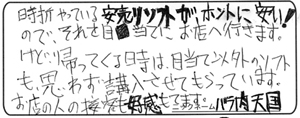 時折やっている安売リソフトがホントに安い!
ので、それを目当てにお店へ行きます。
けど、帰ってくる時は、目当て以外のソフト
も、思わず購入させてもらっています。
お店の人の接客も好感もてます。ホームバラ肉天国